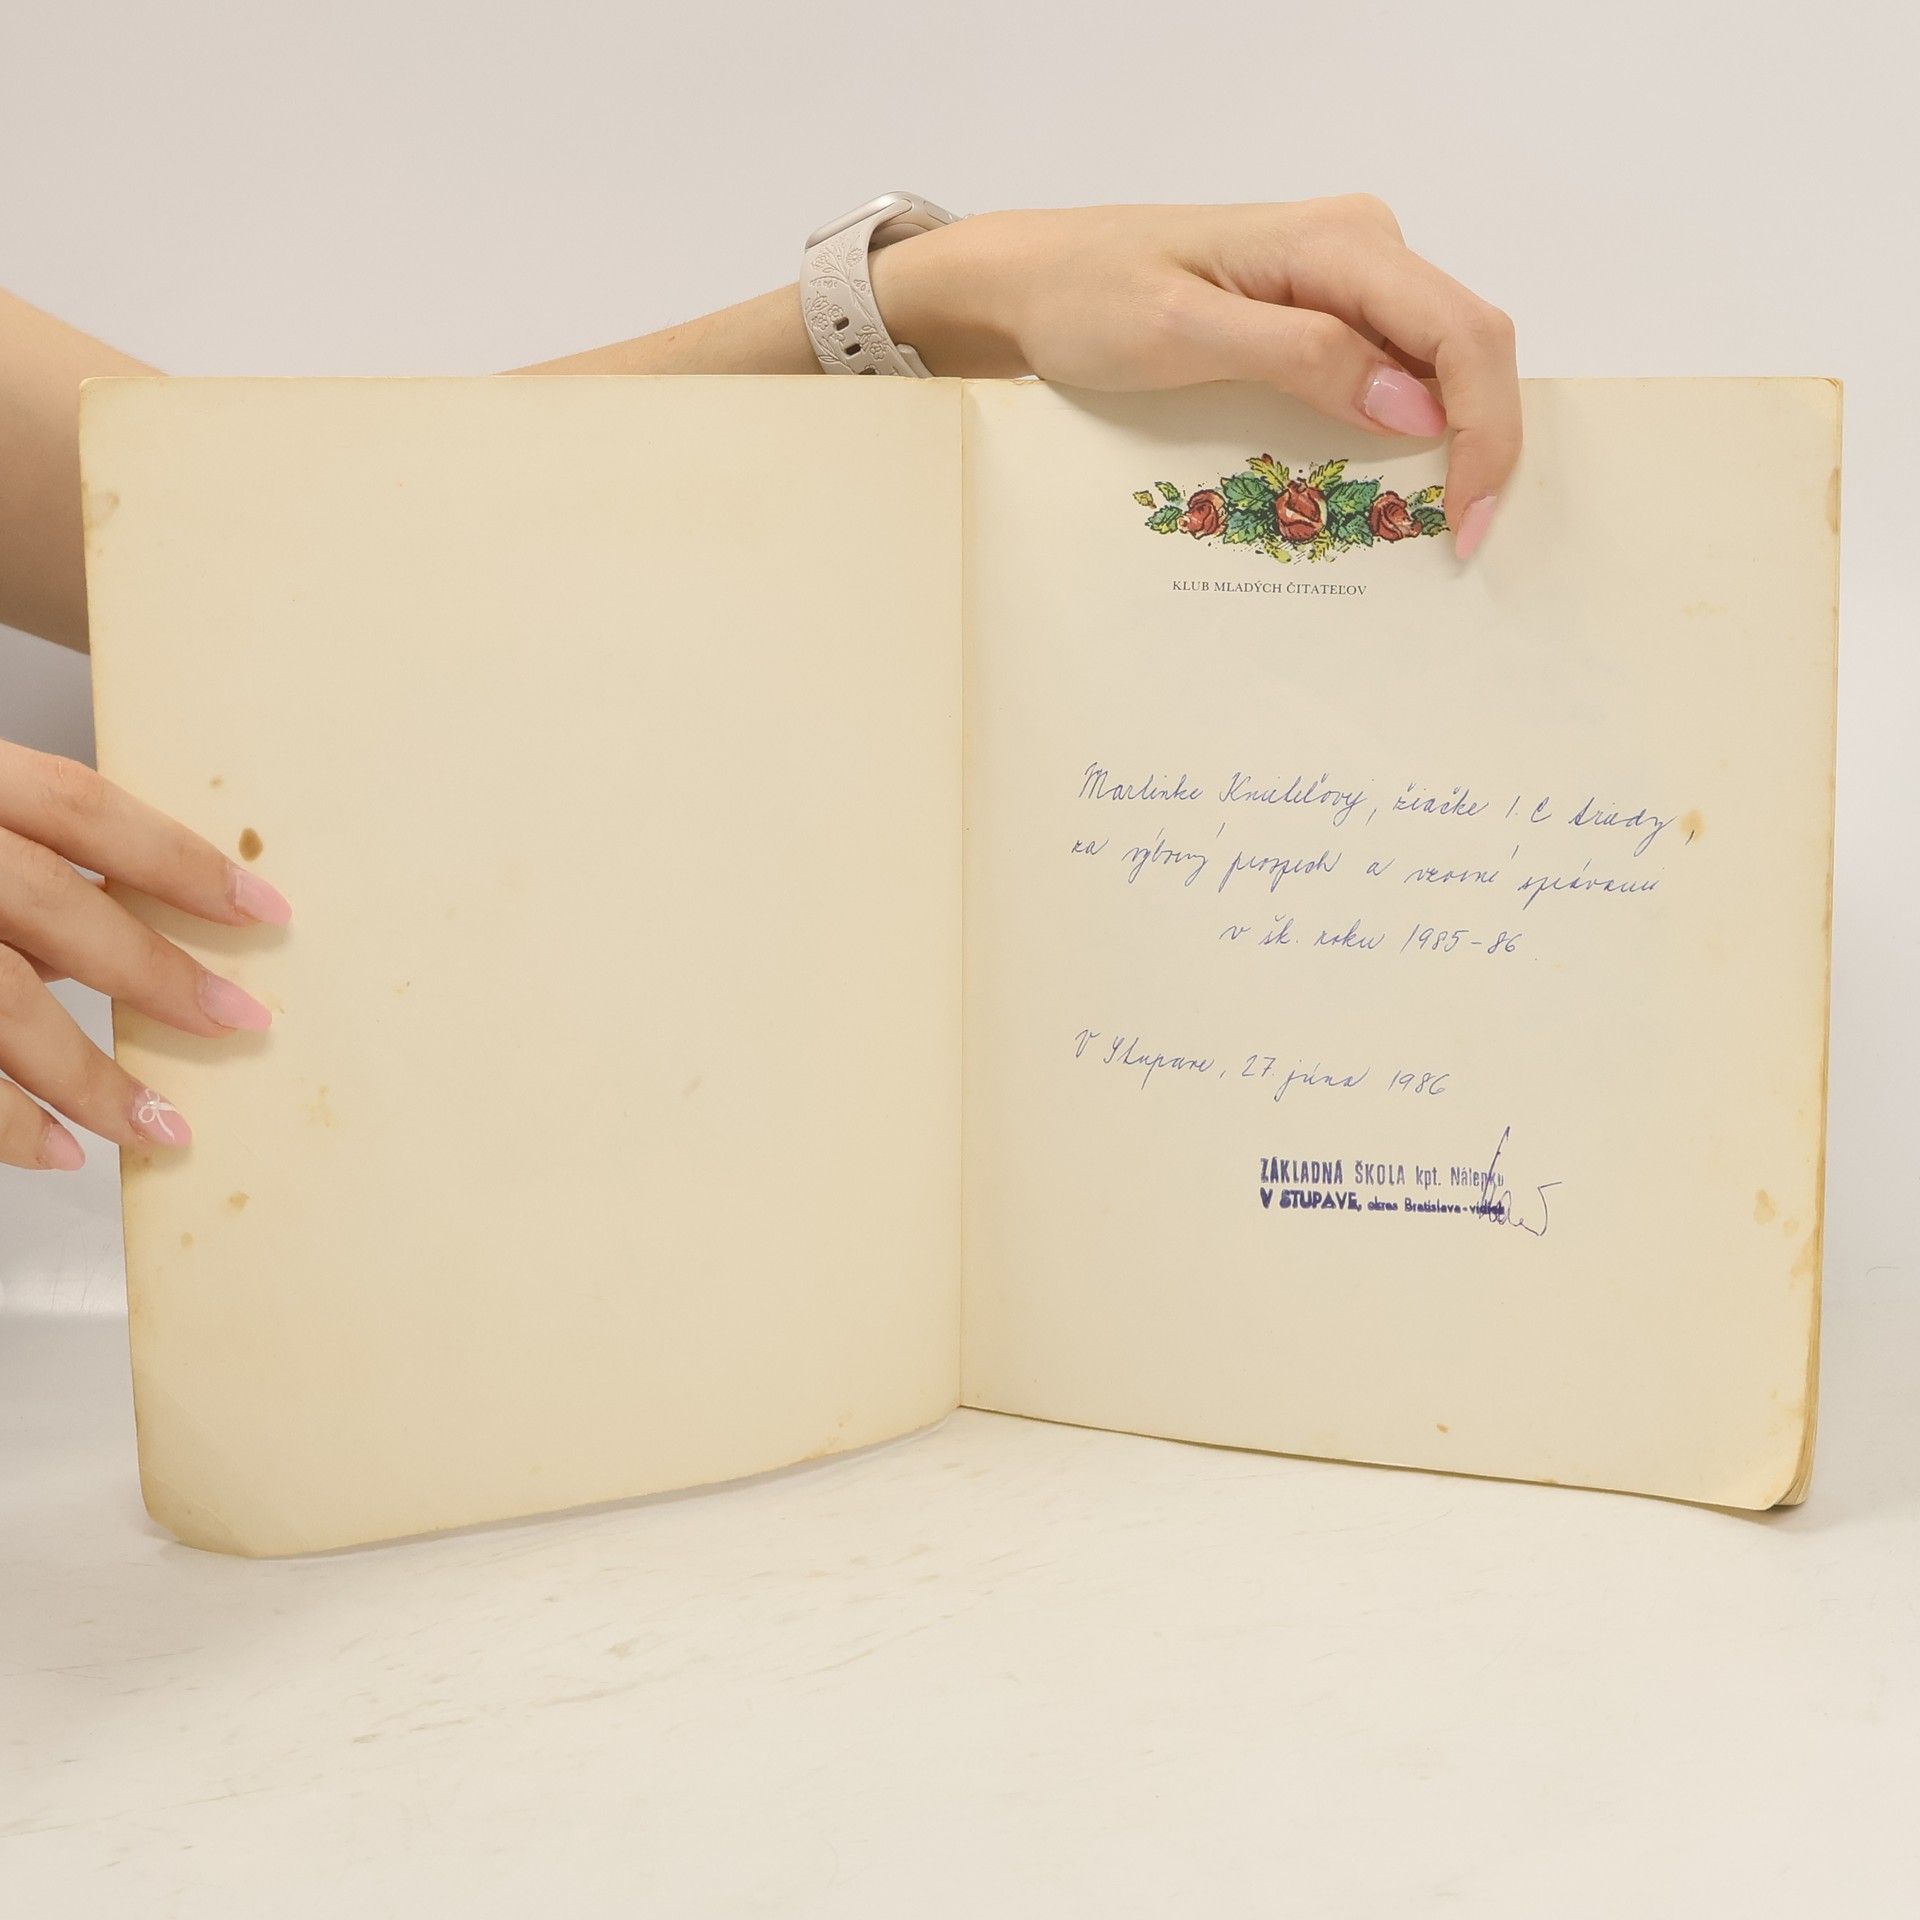 KLUB MLADÝCH ČITATEĽOV
Martinke Knieteľovej, žiačke 1. C triedy,
za výborný prospech a vzorné správanie
v šk. roku 1985-86.
V Stupave, 27. júna 1986
ZÁKLADNÁ ŠKOLA kpt. Nálepku
V STUPAVE, okres Bratislava-vidiek